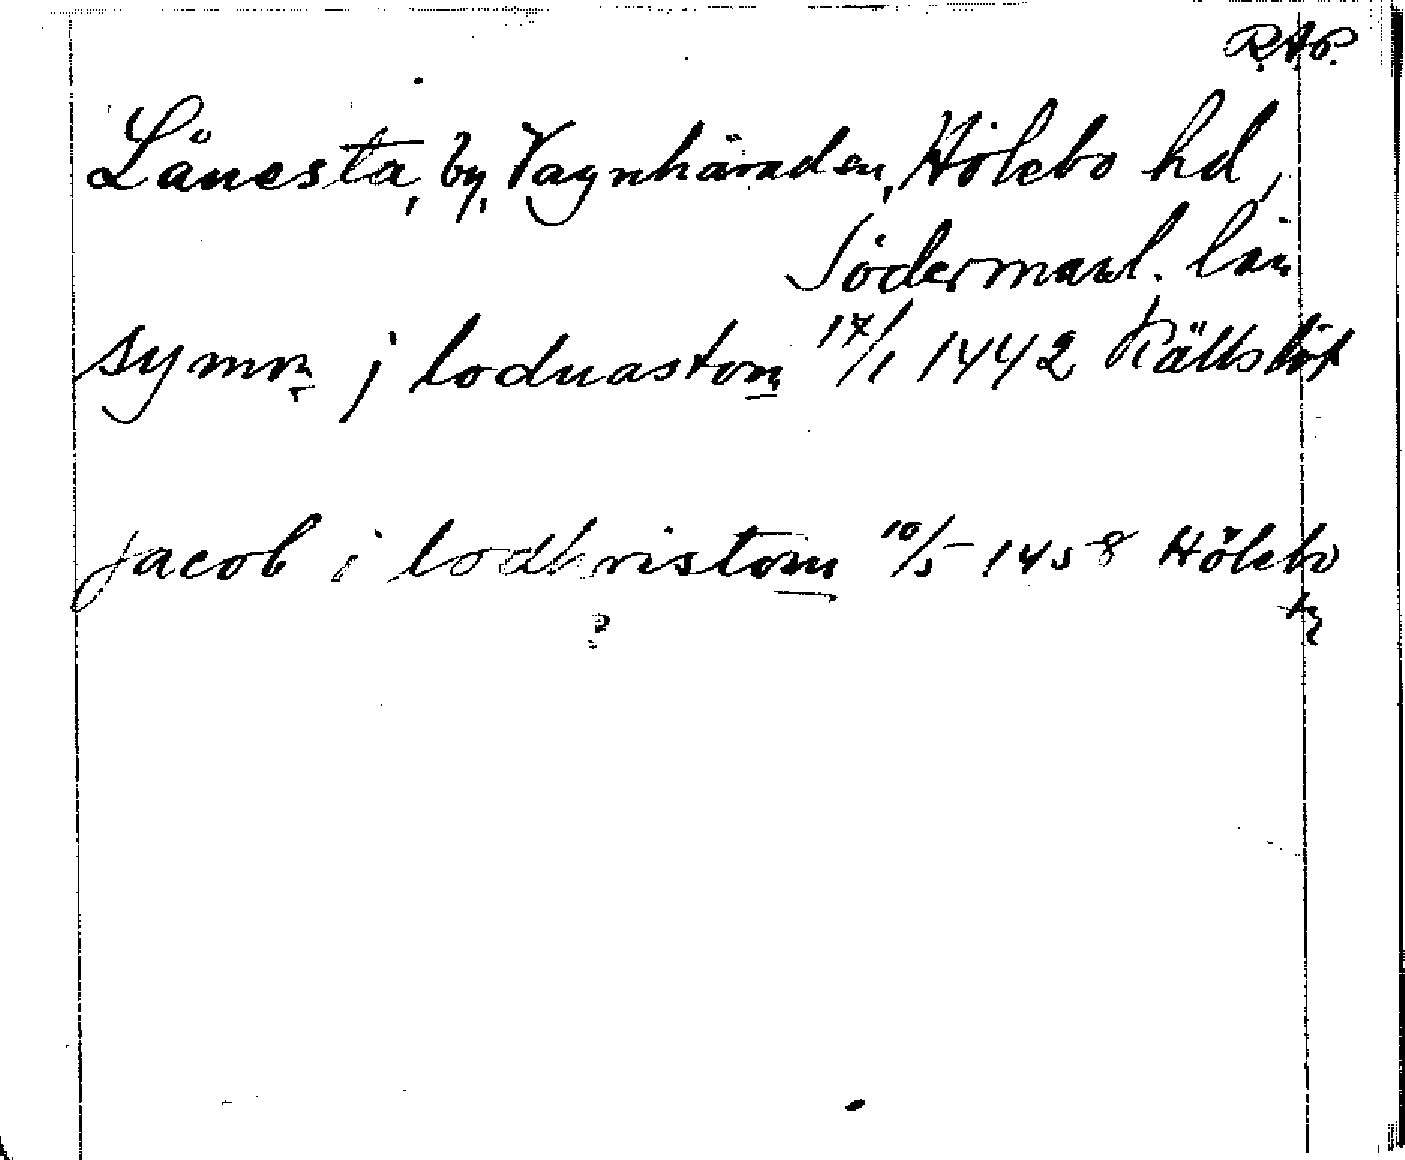 R.A.P.
Lånesta, by, Vagnhärad sn, Hölebo hd,
Södermanl. län
symon j loduastom 17/1 1442
jacob i lodhvistom 10/5 1458 Hölebo
?